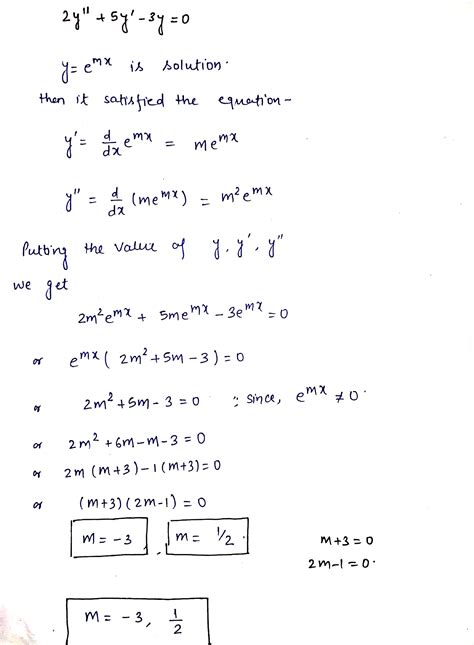 2y'' + 5y' - 3y = 0
y = e^{mx} is solution.
then it satisfied the equation -
y' = d/dx e^{mx} = me^{mx}
y'' = d/dx (me^{mx}) = m²e^{mx}
Putting the value of y, y', y''
we get
2m²e^{mx} + 5me^{mx} - 3e^{mx} = 0
or e^{mx} (2m² + 5m - 3) = 0
or 2m² + 5m - 3 = 0 ∵ since, e^{mx} ≠ 0.
or 2m² + 6m - m - 3 = 0
or 2m (m+3) - 1 (m+3) = 0
or (m+3) (2m-1) = 0
m = -3 , m = 1/2 .
m+3 = 0
2m-1 = 0.
m = -3, 1/2